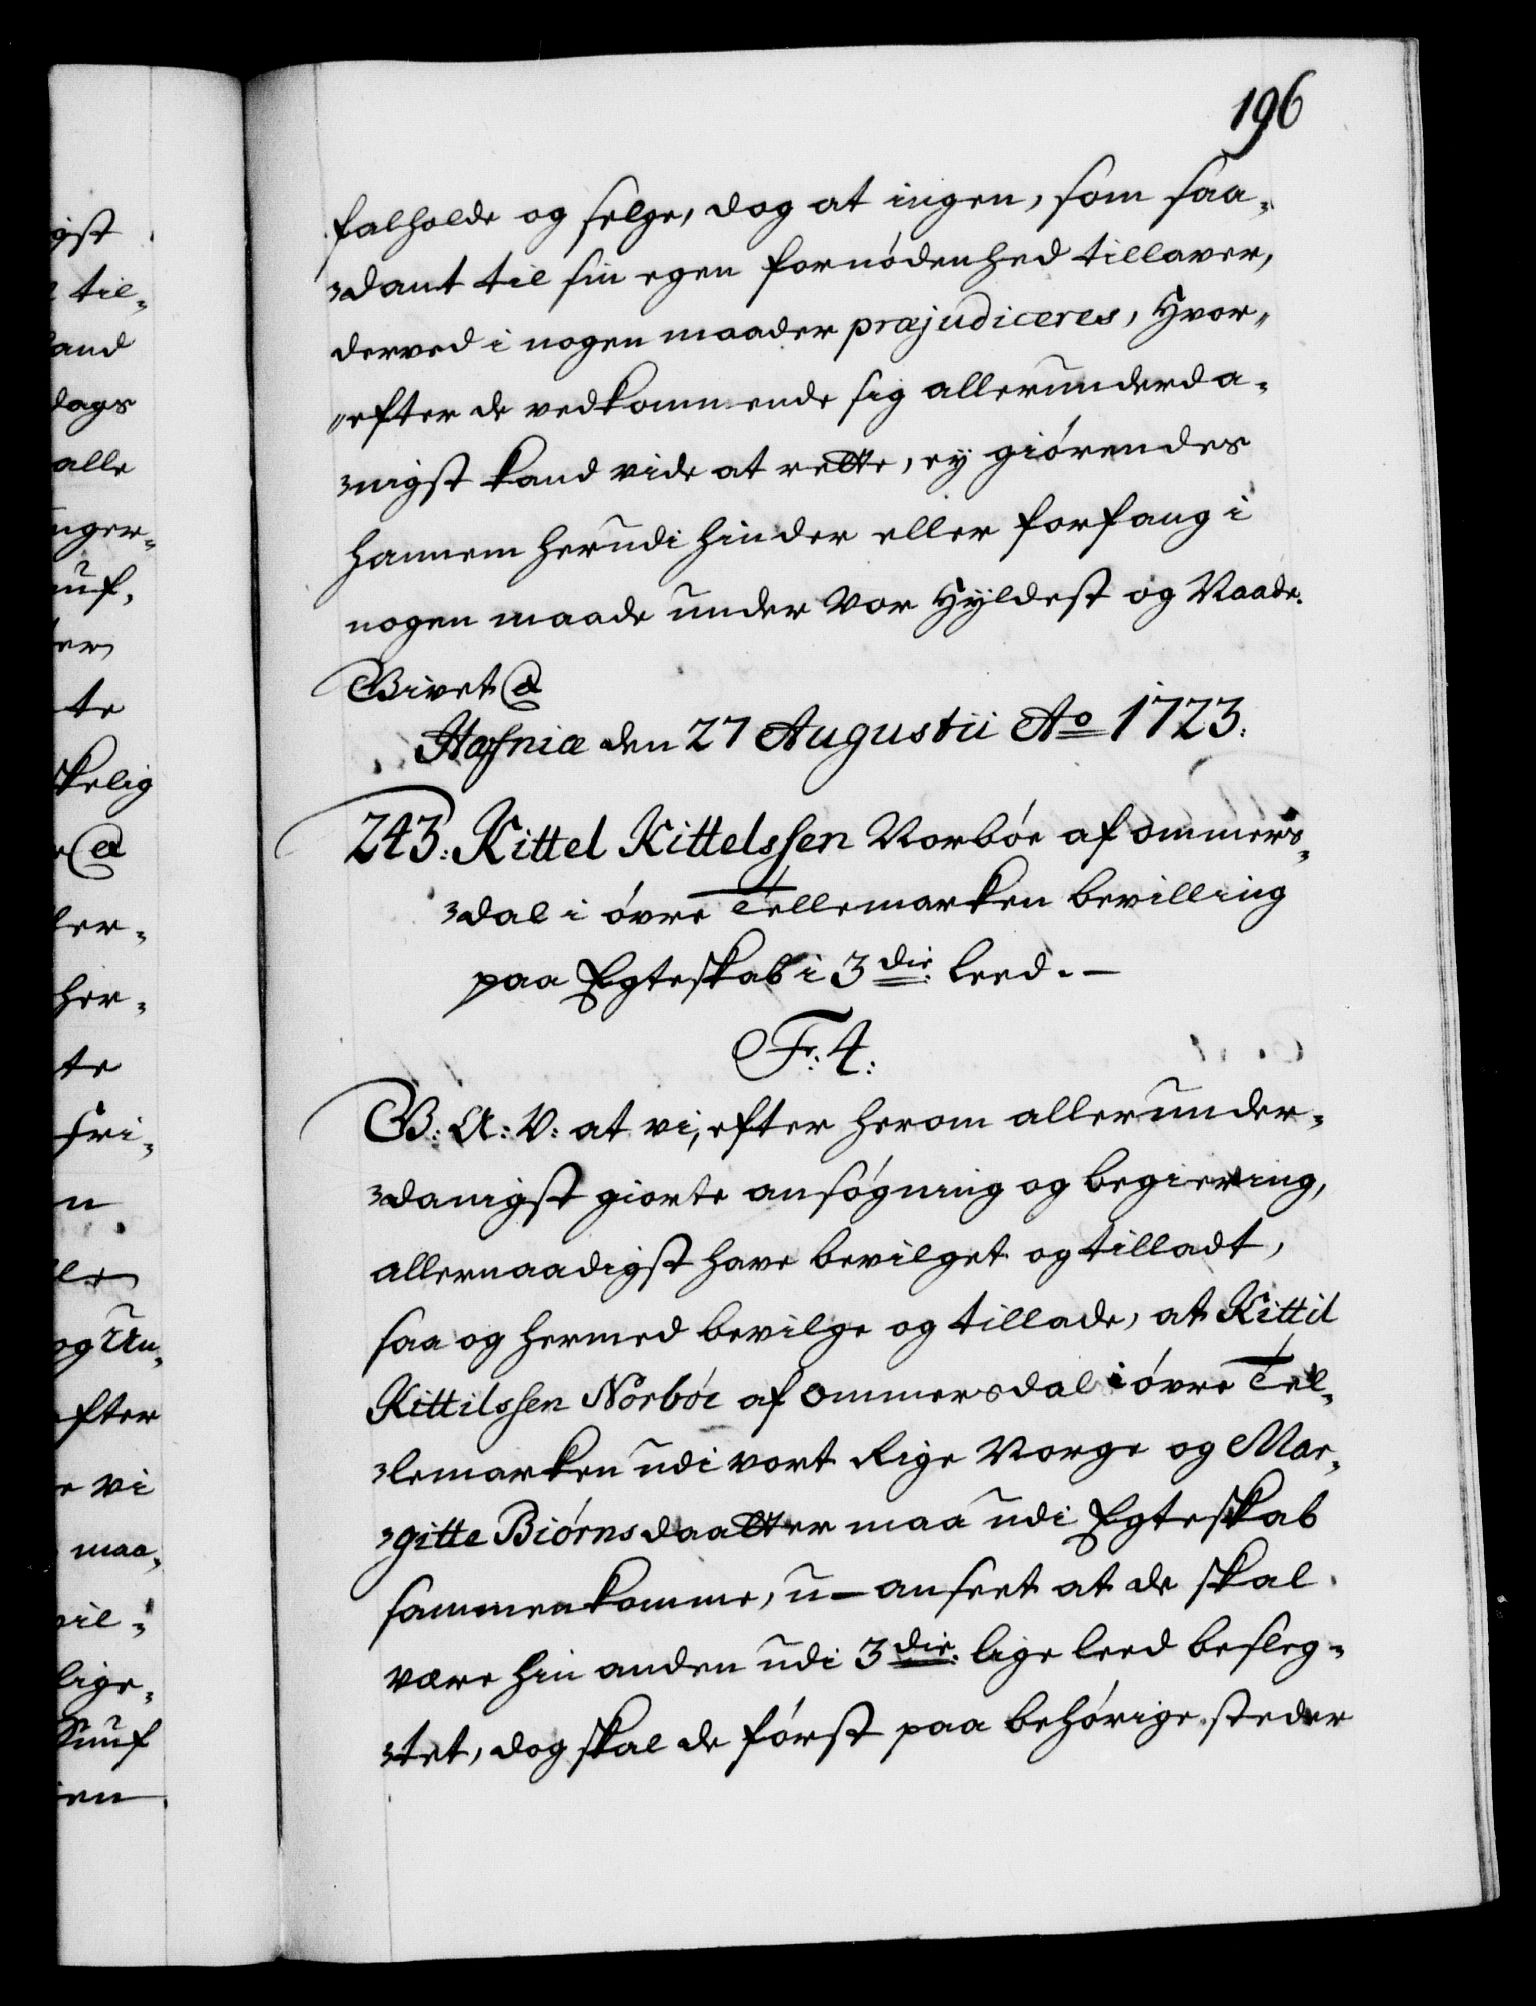 196
falholde og selge, dog at ingen, som saa-
-dant til sin egen fornödenhed tillaver,
derved i nogen maader præjudiceres, Hvor-
-efter de vedkommende sig allerunderda-
-nigst kand vide at rette, ey giörendes
hannem herudi hinder eller forfang i
nogen maade under Vor Hyldest og Naade.
Givet &
Hafniæ den 27 Augustii Ao 1723.
243: Kittel Kittelssen Norböe af ommers-
-dal i övre Tellemarken bevilling
paa Egteskab i 3die leed.-
Fr: 4:
G: A: V: at vi, efter herom allerunder-
-danigst giorte ansögning og begiering,
allernaadigst have bevilget og tilladt,
saa og hermed bevilge og tillade, at Kittil
Kittilssen Norböe af ommersdal i övre Tel-
-lemarken udi vort Rige Norge og Mar-
-gitte Biörnsdaatter maa udi Egteskab
sammenkomme, u-anseet at de skal
være hin anden udi 3die: lige leed besleg-
-tet, dog skal de först paa behörige steder
gst
til-
and
dags
alle
nger-
uf,
ter
te
skelig
&
ler-
her-
te
fri-
n
le
og Un-
efter
e vi
maa-
vil-
lige-
Kuuf
en